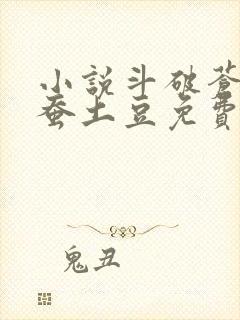 小說斗破蒼
蚕土豆免費
鬼丑